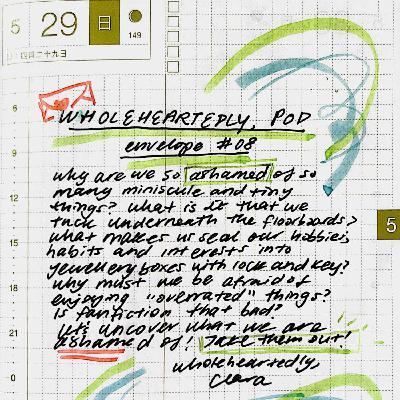 5 29 日 149
四月二十九日
WHOLEHEARTEDLY, POD
envelope #08
why are we so ashamed of so
many miniscule and tiny
things? what is it that we
tuck underneath the floorboards?
what makes us seal our hobbies,
habits and interests into
jewellery boxes with lock and key?
why must we be afraid of
enjoying "overrated" things?
Is fanfiction that bad?
let's uncover what we are
ashamed of! Take them out!
wholeheartedly,
Clara
6
9
12
15
18
21
0
5